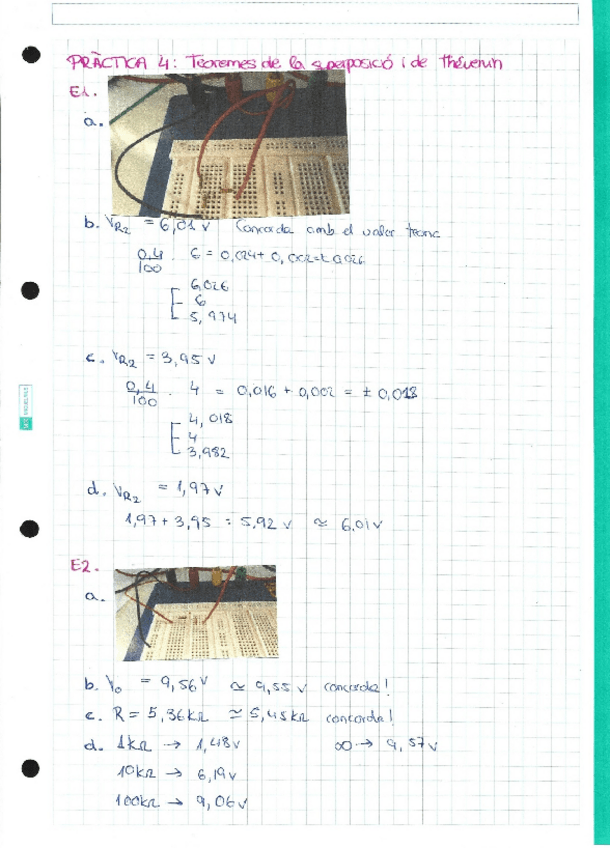 PRÀCTICA 4: Teoremes de la superposició i de Thévenin
E1.
a.
b. V_R2 = 6,01 V Concorda amb el valor teòric
0,4/100 · 6 = 0,024 + 0,002 = ± 0,026
6,026
6
5,974
c. V_R2 = 3,95 V
0,4/100 · 4 = 0,016 + 0,002 = ± 0,018
4,018
4
3,982
d. V_R2 = 1,97 V
1,97 + 3,95 = 5,92 V ≃ 6,01 V
E2.
a.
b. V₀ = 9,56 V ≃ 9,55 V concorda!
c. R = 5,36 kΩ ≃ 5,45 kΩ concorda!
d. 1kΩ → 1,48 V ∞ → 9,57 V
10kΩ → 6,19 V
100kΩ → 9,06 V